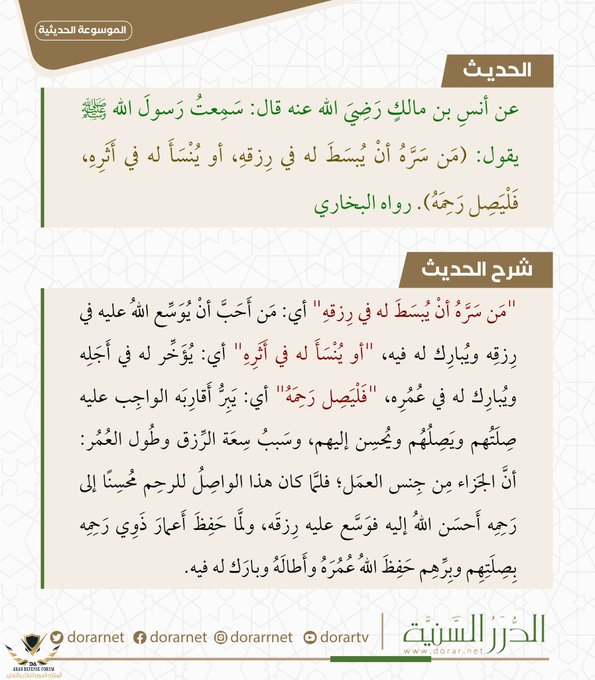 الموسوعة الحديثية
الحديث
عن أنسِ بن مالكٍ رَضِيَ الله عنه قال: سَمِعتُ رَسولَ الله ﷺ
يقول: (مَن سَرَّهُ أنْ يُبسَطَ له في رِزقهِ، أو يُنْسَأَ له في أَثَرِهِ،
فَلْيَصِل رَحِمَهُ). رواه البخاري
شرح الحديث
"مَن سَرَّهُ أنْ يُبسَطَ له في رِزقهِ" أي: مَن أَحَبَّ أنْ يُوَسِّع اللهُ عليه في
رِزقِه ويُبارِك له فيه، "أو يُنْسَأَ له في أَثَرِهِ" أي: يُؤَخِّر له في أَجَلِه
ويُبارِك له في عُمُرِه، "فَلْيَصِل رَحِمَهُ" أي: يَبِرُّ أَقارِبَه الواجِب عليه
صِلَتُهم ويَصِلُهُم ويُحسِن إليهم، وسَببُ سِعَة الرِّزق وطُول العُمُر:
أنَّ الجَزاء مِن جِنس العمَل؛ فلمَّا كان هذا الواصِلُ للرحِم مُحسِنًا إلى
رَحِمِه أَحسَن اللهُ إليه فوَسَّع عليه رِزقَه، ولمَّا حَفِظَ أَعمارَ ذَوِي رَحِمِه
بِصِلَتِهِم وبِرِّهِم حَفِظَ اللهُ عُمُرَهُ وأَطالَهُ وبارَك له فيه.
الدُّرَرُ السَّنِيَّة
www.dorar.net
dorarnet dorarnet dorarrnet dorartv
ARAB DEFENSE FORUM